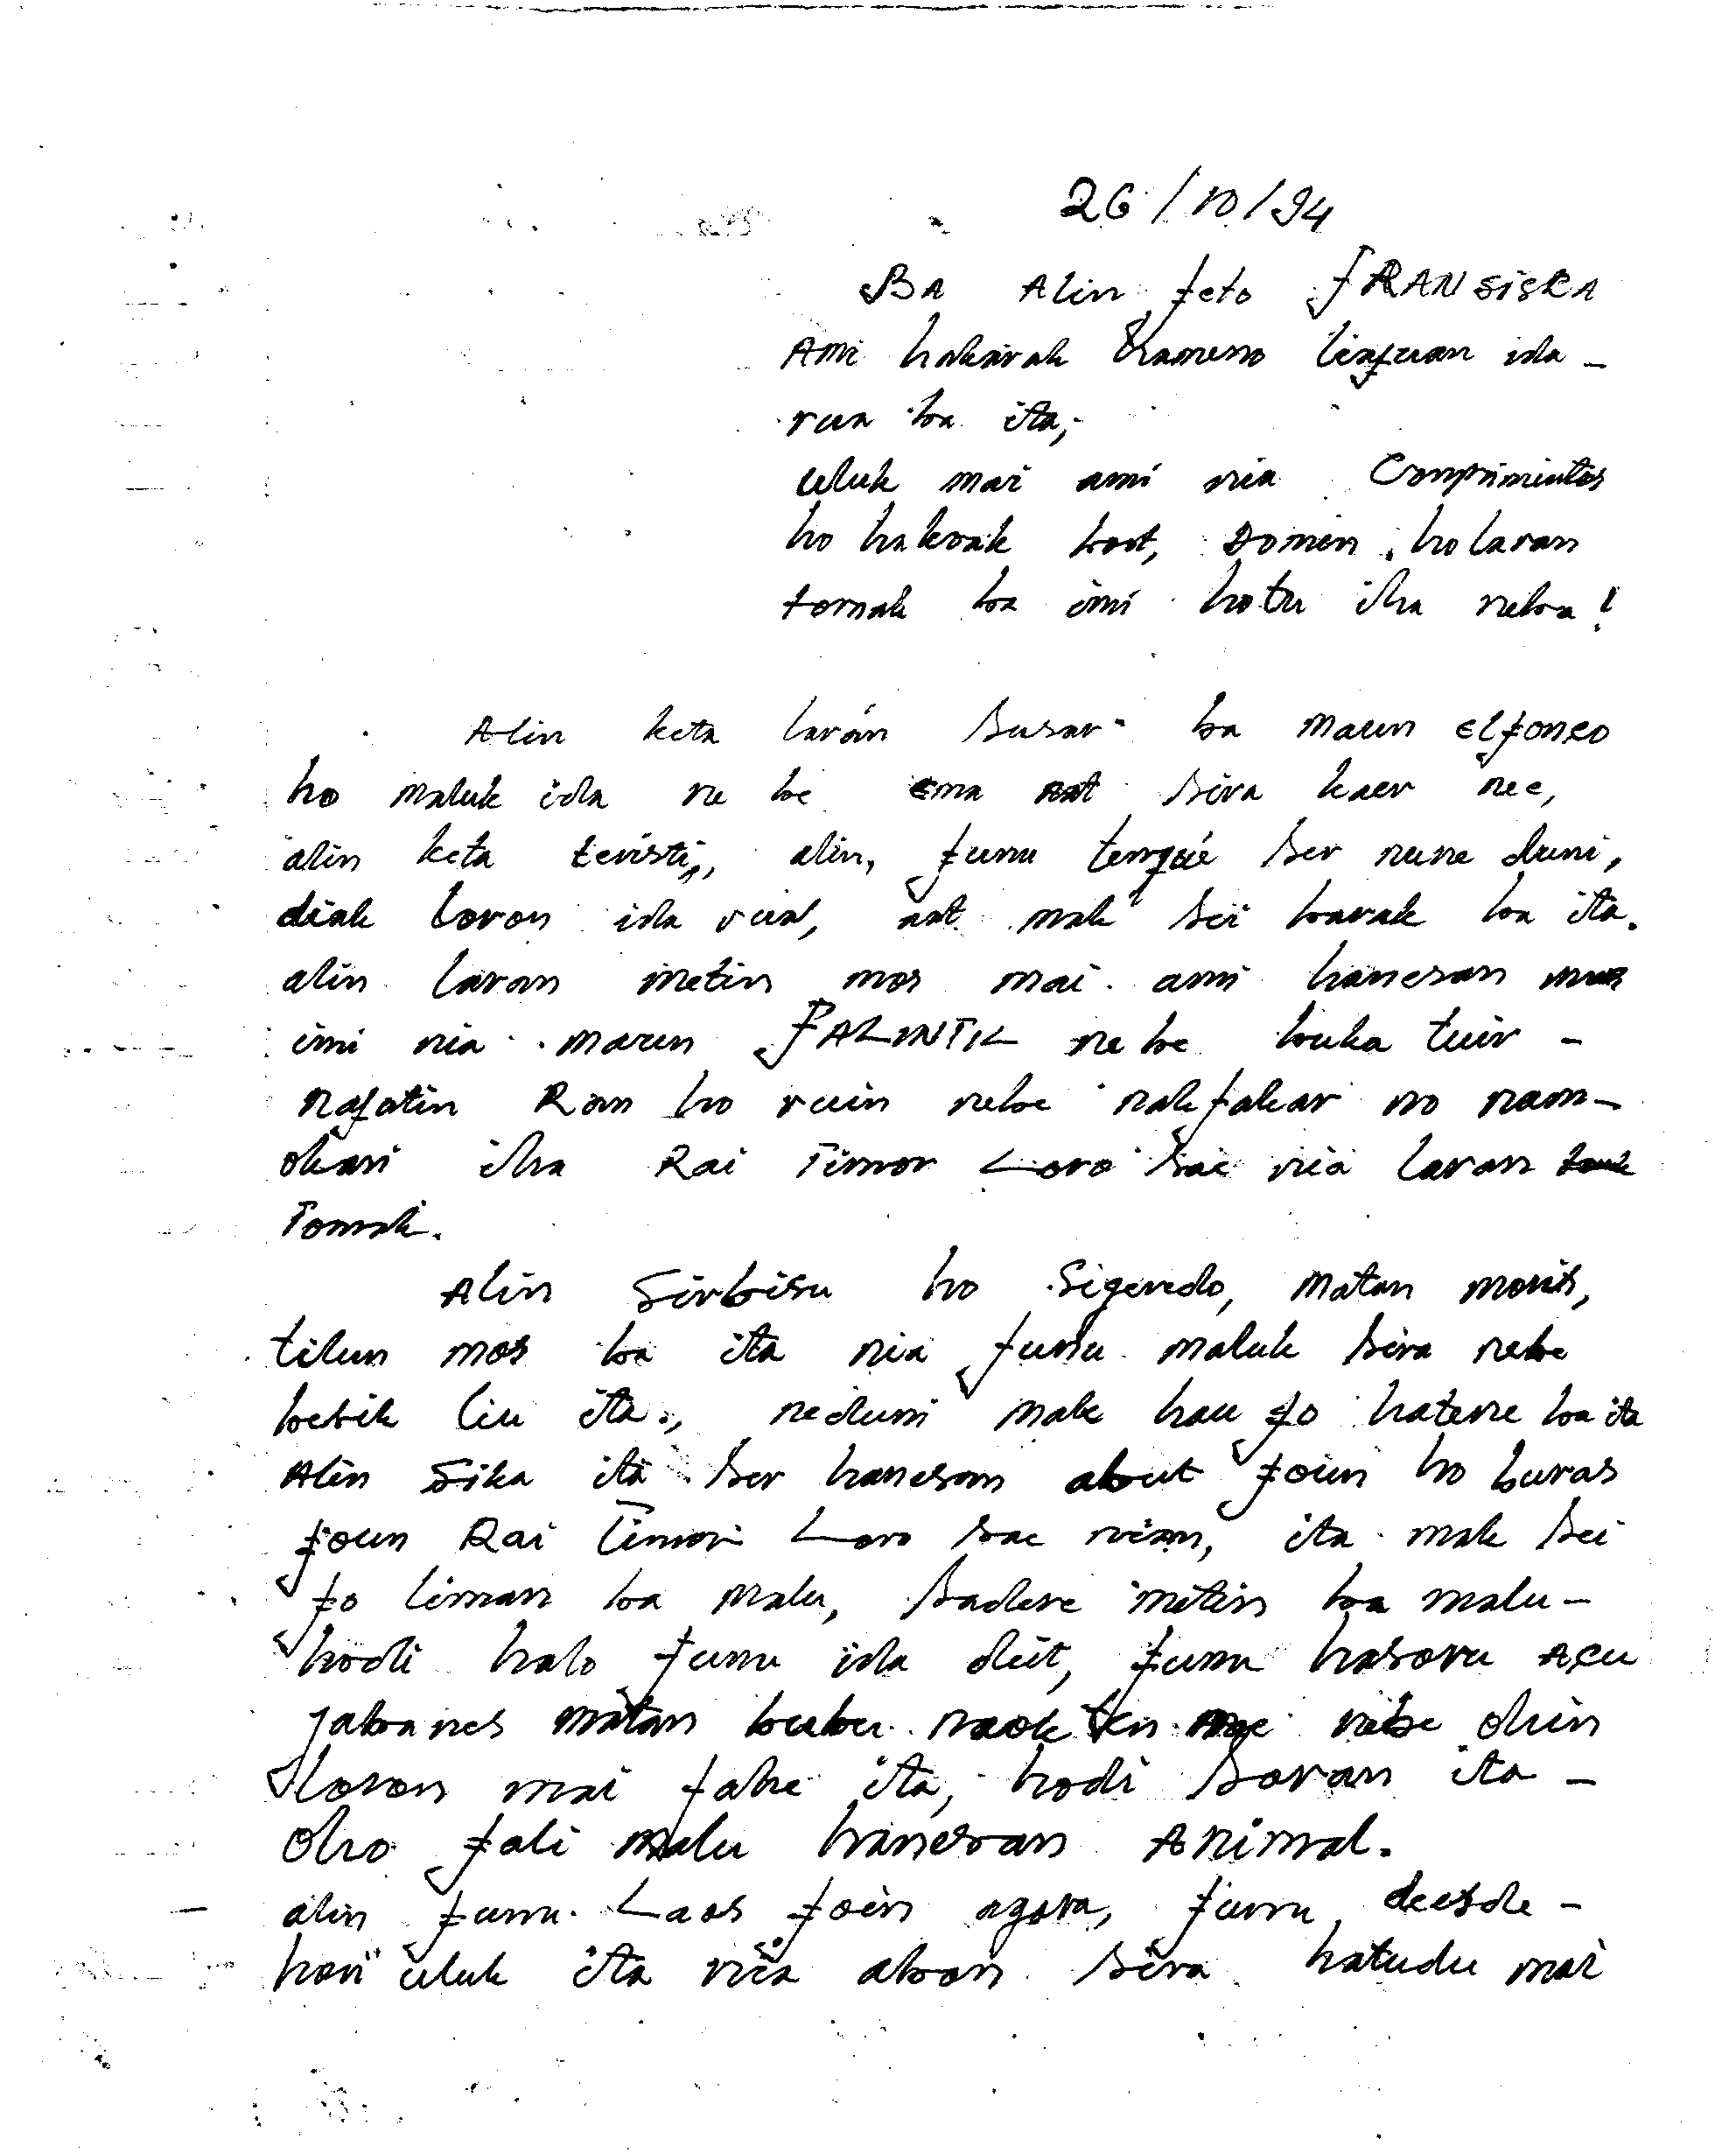 26/10/94
BA Alin feto FRANSISKA
Ami hakarak hameno liafuan ida -
rua ba ita;
uluk mai ami nia Comprimintos
ho hakoak boot, Domin, ho laran
tomak ba imi hotu iha neba!
Alin keta larán susar ba maun Elfonso
ho maluk ida ne be ema aat sira kaer nee,
alin keta teristi, alin, funu ser nune duni,
diak loron ida rua, aat mak sei barak ba ita.
alin laran metin mos mai ami hanesan
imi nia maun FALINTIL ne be buka tuir -
nafatin Ran ho ruin nebe nakfakar no nam-
okari iha Rai Timor Loro sae nia laran
Tomak.
Alin Sirbisu ho Sigeredo, matan moris,
tilun mos ba ita nia funu maluk sira nebe
besik liu ita., neduni mak hau fo hatene ba ita
Alin Sika ita ser hanesan abut foun ho buras
foun Rai Timor Loro sae nian, ita mak sei
fo liman ba malu, sadere metin ba malu -
hodi halo funu ida deit, funu hasoru Açu
jabanes matan bubu naok ten nebe ohin
loron mai fahe ita, hodi soran ita -
Oho fali malu hanesan Animal.
alin funu Laos foin agora, funu deesde -
hori uluk ita nia abon sira hatudu mai